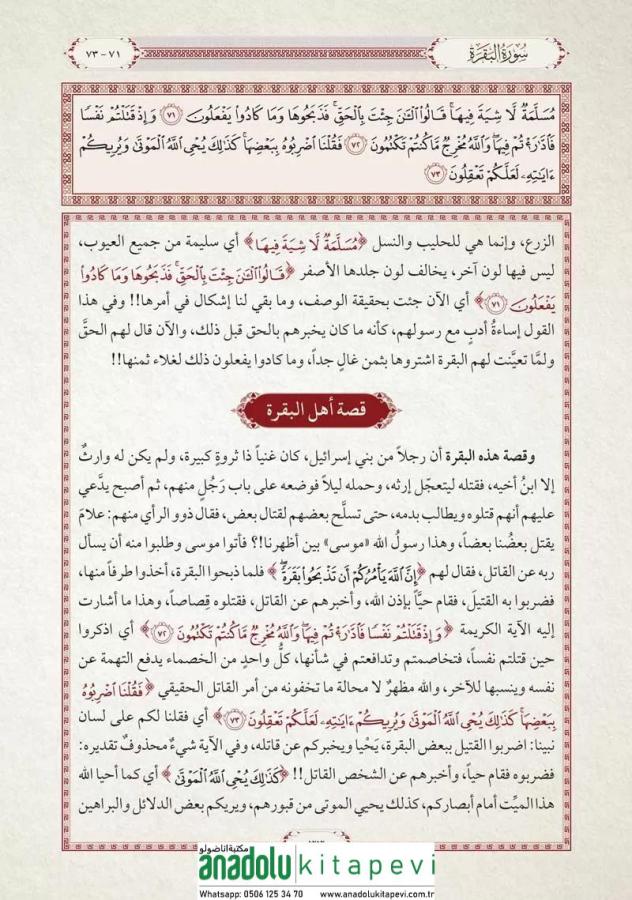 سُورَةُ البَقَرَةِ
٧١ - ٧٣
مُسَلَّمَةٌ لَّا شِيَةَ فِيهَا ۚ قَالُوا الْـَٰٔنَ جِئْتَ بِالْحَقِّ ۚ فَذَبَحُوهَا وَمَا كَادُوا يَفْعَلُونَ ﴿٧١﴾ وَإِذْ قَتَلْتُمْ نَفْسًا
فَادَّٰرَْٰٔتُمْ فِيهَا ۖ وَاللَّهُ مُخْرِجٌ مَّا كُنتُمْ تَكْتُمُونَ ﴿٧٢﴾ فَقُلْنَا اضْرِبُوهُ بِبَعْضِهَا ۚ كَذَٰلِكَ يُحْىِ اللَّهُ الْمَوْتَىٰ وَيُرِيكُمْ
ءَايَٰتِهِۦ لَعَلَّكُمْ تَعْقِلُونَ ﴿٧٣﴾
الزرع، وإنما هي للحليب والنسل ﴿مُسَلَّمَةٌ لَّا شِيَةَ فِيهَا﴾ أي سليمة من جميع العيوب،
ليس فيها لون آخر، يخالف لون جلدها الأصفر ﴿قَالُوا الْـَٰٔنَ جِئْتَ بِالْحَقِّ ۚ فَذَبَحُوهَا وَمَا كَادُوا
يَفْعَلُونَ ﴿٧١﴾﴾ أي الآن جئت بحقيقة الوصف، وما بقي لنا إشكال في أمرها!! وفي هذا
القول إساءةُ أدبٍ مع رسولهم، كأنه ما كان يخبرهم بالحق قبل ذلك، والآن قال لهم الحقَّ
ولمَّا تعيَّنت لهم البقرة اشتروها بثمن غالٍ جداً، وما كادوا يفعلون ذلك لغلاء ثمنها!!
قصة أهل البقرة
وقصة هذه البقرة أن رجلاً من بني إسرائيل، كان غنياً ذا ثروةٍ كبيرة، ولم يكن له وارثٌ
إلا ابنُ أخيه، فقتله ليتعجّل إرثه، وحمله ليلاً فوضعه على باب رَجُلٍ منهم، ثم أصبح يدَّعي
عليهم أنهم قتلوه ويطالب بدمه، حتى تسلَّح بعضهم لقتال بعض، فقال ذوو الرأي منهم: علامَ
يقتل بعضُنا بعضاً، وهذا رسولُ الله «موسى» بين أظهرنا!؟ فأتوا موسى وطلبوا منه أن يسأل
ربه عن القاتل، فقال لهم ﴿إِنَّ اللَّهَ يَأْمُرُكُمْ أَن تَذْبَحُوا بَقَرَةً ۖ﴾ فلما ذبحوا البقرة، أخذوا طرفاً منها،
فضربوا به القتيلَ، فقام حيَّاً بإذن الله، وأخبرهم عن القاتل، فقتلوه قِصاصاً، وهذا ما أشارت
إليه الآية الكريمة ﴿وَإِذْ قَتَلْتُمْ نَفْسًا فَادَّٰرَْٰٔتُمْ فِيهَا ۖ وَاللَّهُ مُخْرِجٌ مَّا كُنتُمْ تَكْتُمُونَ ﴿٧٢﴾﴾ أي اذكروا
حين قتلتم نفساً، فتخاصمتم وتدافعتم في شأنها، كلُّ واحدٍ من الخصماء يدفع التهمة عن
نفسه وينسبها للآخر، والله مظهرٌ لا محالة ما تخفونه من أمر القاتل الحقيقي ﴿فَقُلْنَا اضْرِبُوهُ
بِبَعْضِهَا ۚ كَذَٰلِكَ يُحْىِ اللَّهُ الْمَوْتَىٰ وَيُرِيكُمْ ءَايَٰتِهِۦ لَعَلَّكُمْ تَعْقِلُونَ ﴿٧٣﴾﴾ أي فقلنا لكم على لسان
نبينا: اضربوا القتيل ببعض البقرة، يَحْيا ويخبركم عن قاتله، وفي الآية شيءٌ محذوفٌ تقديره:
فضربوه فقام حياً، وأخبرهم عن الشخص القاتل!! ﴿كَذَٰلِكَ يُحْىِ اللَّهُ الْمَوْتَىٰ﴾ أي كما أحيا الله
هذا الميِّت أمام أبصاركم، كذلك يحيي الموتى من قبورهم، ويريكم بعض الدلائل والبراهين
مكتبة اناضولو
anadolukitapevi
Whatsapp: 0506 125 34 70 www.anadolukitapevi.com.tr